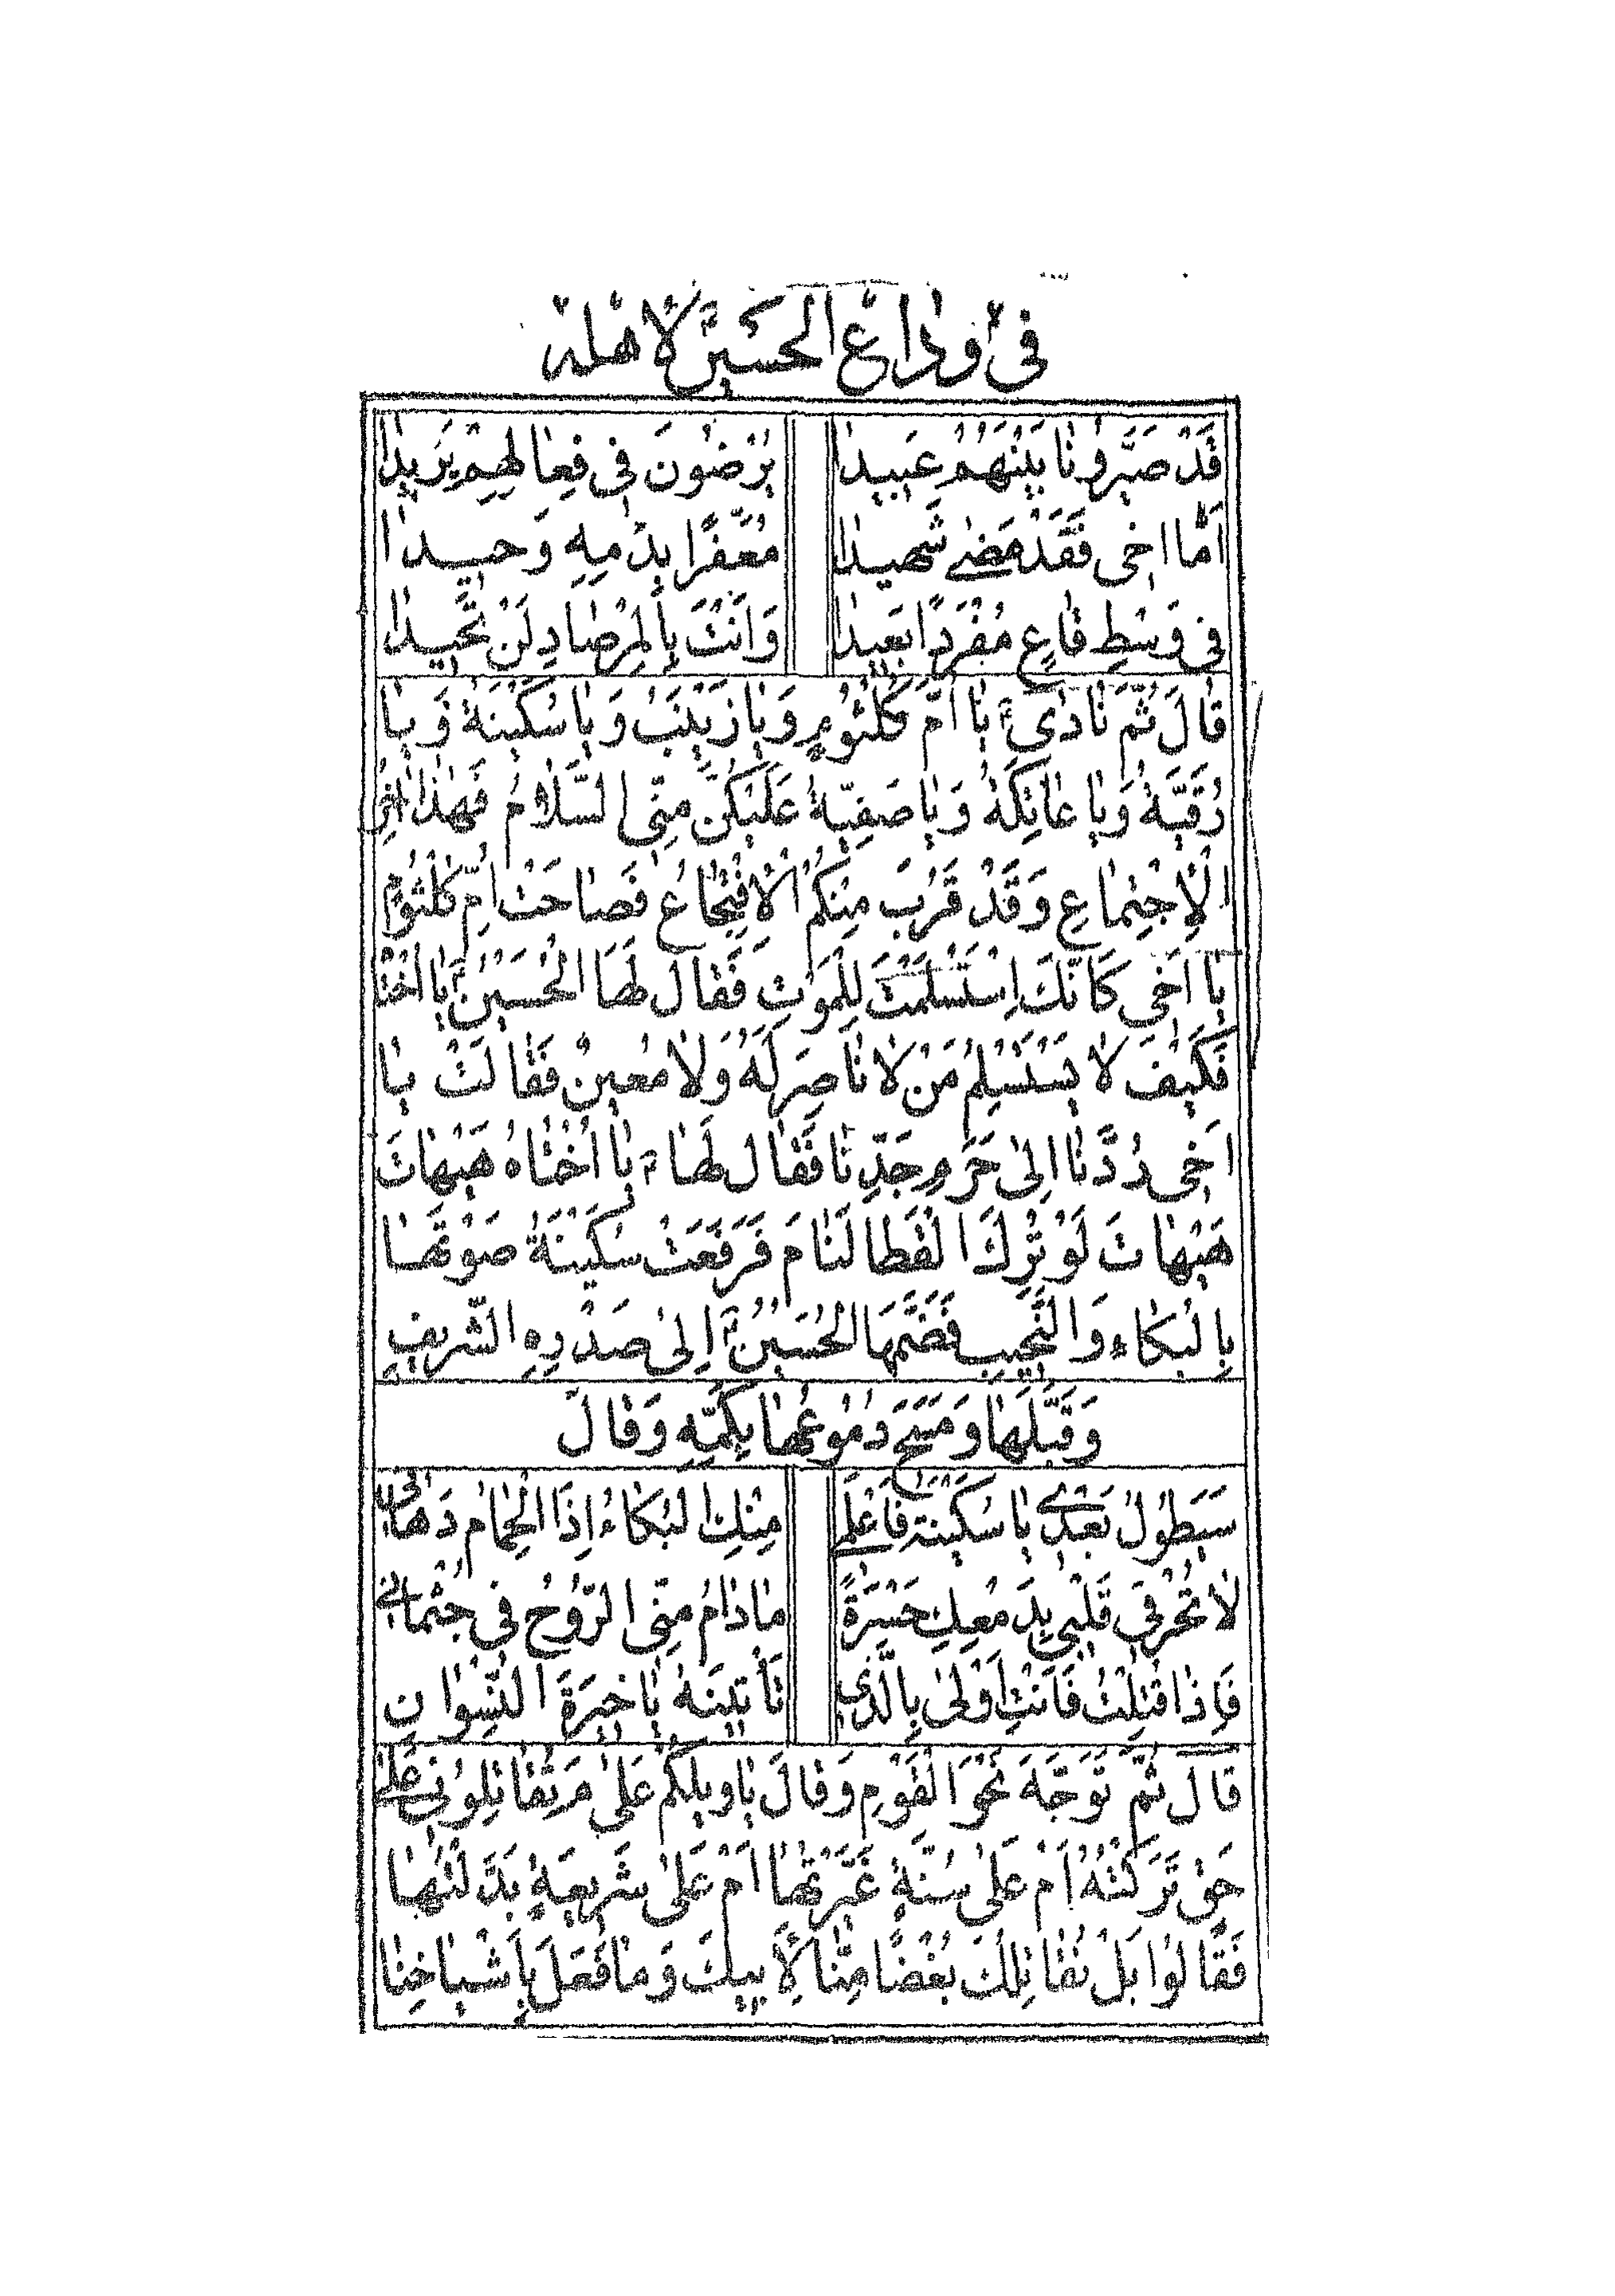 في وداع الحسين لاهله
قَدْ صَيَّرُونا بَيْنَهُمْ عَبيدا يَرْضَوْنَ في فِعالِهِمْ يَزيدا
اَمّا اَخى فَقَدْ مَضى شَهيدا مُعَفَّرًا بِدَمِهِ وَحيدا
فى وَسْطِ قاعٍ مُفْرَدًا بَعيدا وَاَنْتَ بِالمِرْصادِ لَنْ تَحيدا
قالَ ثُمَّ نادى يا اُمَّ كُلْثُومٍ وَيا زَيْنَبُ وَيا سُكَيْنَةُ وَيا
رُقَيَّةُ وَيا عاتِكَةُ وَيا صَفِيَّةُ عَلَيْكُنَّ مِنِّى السَّلامُ فَهذا اخِرُ
الْاِجْتِماعِ وَقَدْ قَرُبَ مِنْكُمُ الْاِفْتِجاعُ فَصاحَتْ اُمّ كُلْثُومٍ
يا اَخى كَاَنَّكَ اِسْتَسْلَمْتَ لِلْمَوْتِ فَقالَ لَهَا الْحُسَيْنُ يا اُخْتا
فَكَيْفَ لا يَسْتَسْلِمُ مَنْ لا ناصِرَ لَهُ وَلا مُعينٌ فَقالَتْ يا
اَخى رُدَّنا اِلى حَرَمِ جَدِّنا فَقالَ لَها يا اُخْتاهُ هَيْهاتَ
هَيْهاتَ لَوْ تُرِكَ الْقَطا لَنامَ فَرَفَعَتْ سُكَيْنَةُ صَوْتَها
بِالْبُكاءِ وَالنَّحيبِ فَضَمَّهَا الْحُسَيْنُ اِلى صَدْرِهِ الشَّريفِ
وَقَبَّلَها وَمَسَحَ دُمُوعَها بِكُمِّهِ وَقالَ
سَيَطُولُ بَعْدى يا سُكَيْنَةُ فَاعْلَمى مِنْكِ الْبُكاءُ اِذَا الْحِمامُ دَهانى
لا تُحْرِقى قَلْبى بِدَمْعِكِ حَسْرَةً مادامَ مِنِّى الرُّوحُ فى جُثْمانى
فَاِذا قُتِلْتُ فَاَنْتِ اَوْلى بِالَّذى تَأْتينَهُ يا خِيَرَةَ النِّسْوانِ
قالَ ثُمَّ تَوَجَّهَ نَحْوَ الْقَوْمِ وَقالَ يا وَيْلَكُمْ عَلى مَ تُقاتِلُونى عَلى
حَقٍّ تَرَكْتُهُ اَمْ عَلى سُنَّةٍ غَيَّرْتُها اَمْ عَلى شَريعَةٍ بَدَّلْتُها
فَقالُوا بَلْ نُقاتِلُكَ بُغْضًا مِنّا لِاَبيكَ وَما فَعَلَ بِاَشْياخِنا